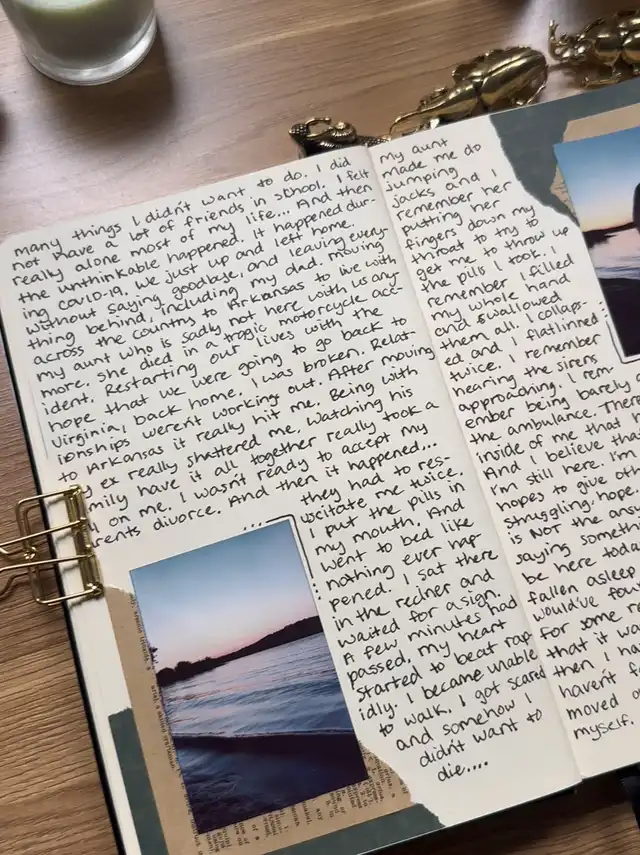 many things I didn't want to do. I did
not have a lot of friends in school. I felt
really alone most of my life... And then
the unthinkable happened. It happened dur-
ing COVID-19. We just up and left home.
without saying goodbye, and leaving every-
thing behind, including my dad. moving
across the country to Arkansas to live with
my aunt who is sadly not here with us any-
more. she died in a tragic motorcycle acc-
ident. Restarting our lives with the
hope that we were going to go back to
Virginia, back home. I was broken. Relat-
ionships weren't working out. After moving
to Arkansas it really hit me. Being with
ex really shattered me. Watching his
mily have it all together really took a
on me. I wasn't ready to accept my
rents divorce. And then it happened...
... they had to res-
uscitate me twice.
I put the pills in
my mouth. And
went to bed like
nothing ever hap
pened. I sat there
in the recliner and
waited for a sign.
A few minutes had
passed, my heart
started to beat rap
idly. I became unable
to walk. I got scared
and somehow I
didn't want to
die....
My aunt
made me do
jumping
jacks and I
remember her
putting her
fingers down my
throat to try to
get me to throw up
the pills I took. I
remember I filled
my whole hand
and swallowed
them all. I collaps-
ed and I flatlined
twice. I remember
hearing the sirens
approaching. I rem-
ember being barely
the ambulance. There
inside of me that
And I believe tha
I'm still here. I'm
hopes to give othe
struggling, hope.
is NOT the ans
saying someth
be here today
fallen asleep
would've fou
for some re
that it wa
then I ha
haven't f
moved
myself.